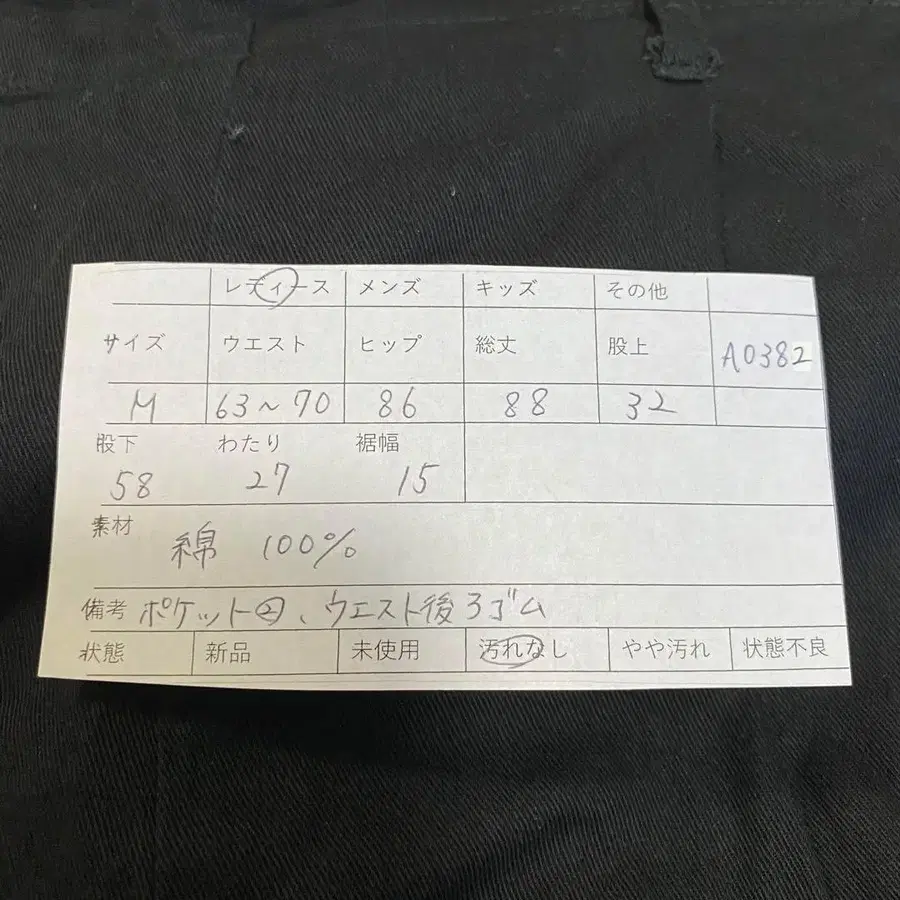 レディース メンズ キッズ その他
サイズ ウエスト ヒップ 総丈 股上 A0382
M 63~70 86 88 32
股下 わたり 裾幅
58 27 15
素材 綿 100%
備考 ポケット②、ウエスト後ろゴム
状態 新品 未使用 汚れなし やや汚れ 状態不良